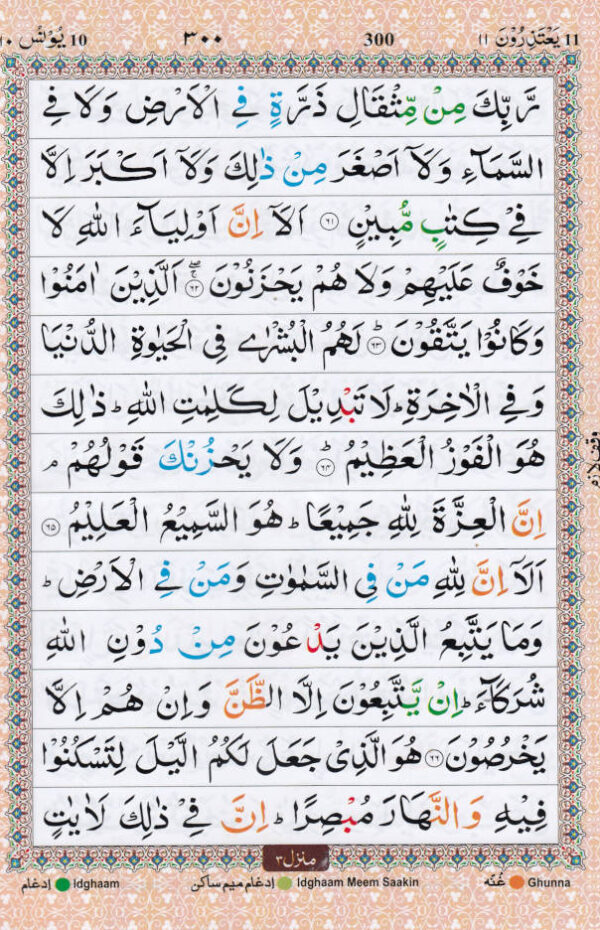 11 يَعْتَذِرُوْنَ ۱۱ 300 ۳۰۰ 10 يُوْنُسْ ۱۰
رَّبِّكَ مِنْ مِّثْقَالِ ذَرَّةٍ فِي الْاَرْضِ وَلَا فِي
السَّمَآءِ وَلَاۤ اَصْغَرَ مِنْ ذٰلِكَ وَلَاۤ اَكْبَرَ اِلَّا
فِيْ كِتٰبٍ مُّبِيْنٍ ۶۱ اَلَاۤ اِنَّ اَوْلِيَآءَ اللّٰهِ لَا
خَوْفٌ عَلَيْهِمْ وَلَا هُمْ يَحْزَنُوْنَ ۶۲ ۚ اَلَّذِيْنَ اٰمَنُوْا
وَكَانُوْا يَتَّقُوْنَ ۶۳ ؕ لَهُمُ الْبُشْرٰى فِي الْحَيٰوةِ الدُّنْيَا
وَفِي الْاٰخِرَةِ ؕ لَا تَبْدِيْلَ لِكَلِمٰتِ اللّٰهِ ؕ ذٰلِكَ
هُوَ الْفَوْزُ الْعَظِيْمُ ۶۴ ؕ وَلَا يَحْزُنْكَ قَوْلُهُمْ ۘ
وقف لازم
اِنَّ الْعِزَّةَ لِلّٰهِ جَمِيْعًا ؕ هُوَ السَّمِيْعُ الْعَلِيْمُ ۶۵
اَلَاۤ اِنَّ لِلّٰهِ مَنْ فِي السَّمٰوٰتِ وَمَنْ فِي الْاَرْضِ ؕ
وَمَا يَتَّبِعُ الَّذِيْنَ يَدْعُوْنَ مِنْ دُوْنِ اللّٰهِ
شُرَكَآءَ ؕ اِنْ يَّتَّبِعُوْنَ اِلَّا الظَّنَّ وَاِنْ هُمْ اِلَّا
يَخْرُصُوْنَ ۶۶ هُوَ الَّذِيْ جَعَلَ لَكُمُ الَّيْلَ لِتَسْكُنُوْا
فِيْهِ وَالنَّهَارَ مُبْصِرًا ؕ اِنَّ فِيْ ذٰلِكَ لَاٰيٰتٍ
منزل ۳
إدغام Idghaam إدغام ميم ساكن Idghaam Meem Saakin غُنّه Ghunna